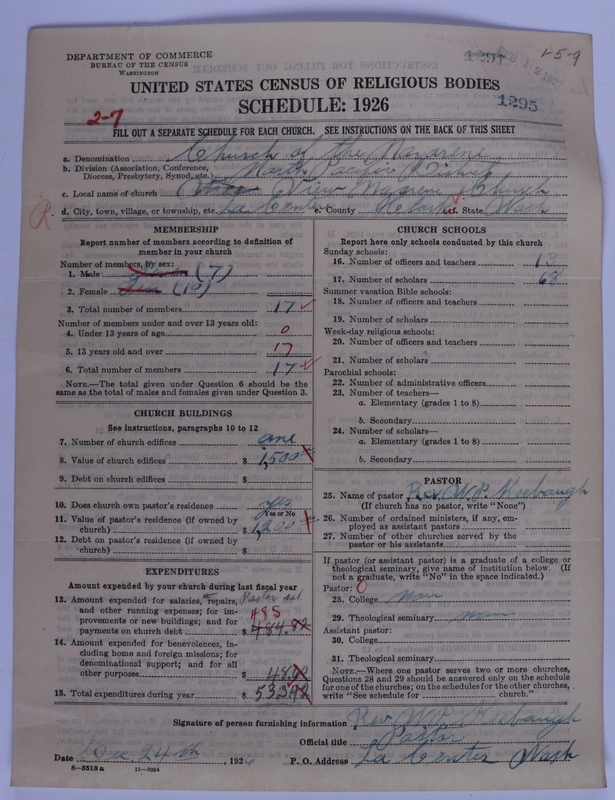 DEPARTMENT OF COMMERCE
BUREAU OF THE CENSUS
WASHINGTON
1-5-9
UNITED STATES CENSUS OF RELIGIOUS BODIES
SCHEDULE: 1926
1295
2-7
FILL OUT A SEPARATE SCHEDULE FOR EACH CHURCH. SEE INSTRUCTIONS ON THE BACK OF THIS SHEET
a. Denomination Church of the Nazarene
b. Division (Association, Conference, North Pacific District
Diocese, Presbytery, Synod, etc.)
c. Local name of church View Nazarene Church
d. City, town, village, or township, etc. La Center e. County Clark f. State Wash
MEMBERSHIP
Report number of members according to definition of
member in your church
Number of members, by sex:
1. Male (7)
2. Female Ten (10)
3. Total number of members 17
Number of members under and over 13 years old:
4. Under 13 years of age 0
5. 13 years old and over 17
6. Total number of members 17
NOTE.—The total given under Question 6 should be the
same as the total of males and females given under Question 3.
CHURCH BUILDINGS
See instructions, paragraphs 10 to 12
7. Number of church edifices one
8. Value of church edifices $ 1,500
9. Debt on church edifices $
10. Does church own pastor's residence yes
Yes or No
11. Value of pastor's residence (if owned by
church) $ 1,200
12. Debt on pastor's residence (if owned by
church) $
EXPENDITURES
Amount expended by your church during last fiscal year
13. Amount expended for salaries, repairs, Pastor sal.
and other running expenses; for im- 485
provements or new buildings; and for
payments on church debt $ 484.82
14. Amount expended for benevolences, in-
cluding home and foreign missions; for
denominational support; and for all
other purposes $
15. Total expenditures during year $
CHURCH SCHOOLS
Report here only schools conducted by this church
Sunday schools:
16. Number of officers and teachers
17. Number of scholars 68
Summer vacation Bible schools:
18. Number of officers and teachers
19. Number of scholars
Week-day religious schools:
20. Number of officers and teachers
21. Number of scholars
Parochial schools:
22. Number of administrative officers
23. Number of teachers—
a. Elementary (grades 1 to 8)
b. Secondary
24. Number of scholars—
a. Elementary (grades 1 to 8)
b. Secondary
PASTOR
25. Name of pastor Rev. W.P. Keebaugh
(If church has no pastor, write "None")
26. Number of ordained ministers, if any, em-
ployed as assistant pastors
27. Number of other churches served by the
pastor or his assistants
If pastor (or assistant pastor) is a graduate of a college or
theological seminary, give name of institution below. (If
not a graduate, write "No" in the space indicated.)
Pastor: 0
28. College None
29. Theological seminary None
Assistant pastor:
30. College
31. Theological seminary
NOTE.—Where one pastor serves two or more churches,
Questions 28 and 29 should be answered only on the schedule
for one of the churches; on the schedules for the other churches,
write "See schedule for church."
Signature of person furnishing information Rev. W.P. Keebaugh
Official title Pastor
Date Dec 24th, 1926 P. O. Address La Center Wash
8-5318a 11-9054